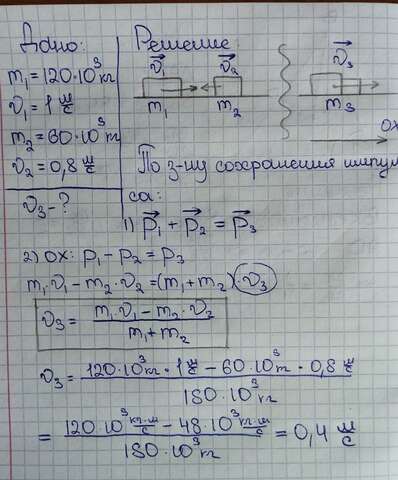 Дано:
m₁ = 120·10³ кг
υ₁ = 1 м/с
m₂ = 60·10³ т
υ₂ = 0,8 м/с
υ₃ - ?
Решение
υ₁ υ₂ υ₃
m₁ m₂ m₃
ОХ
По з-ну сохранения импуль
са:
1) p₁ + p₂ = p₃
2) ОХ: p₁ - p₂ = p₃
m₁·υ₁ - m₂·υ₂ = (m₁ + m₂)·υ₃
υ₃ = (m₁·υ₁ - m₂·υ₂) / (m₁ + m₂)
υ₃ = (120·10³ кг · 1 м/с - 60·10³ т · 0,8 м/с) / (180·10³ кг)
= (120·10³ кг·м/с - 48·10³ кг·м/с) / (180·10³ т) = 0,4 м/с